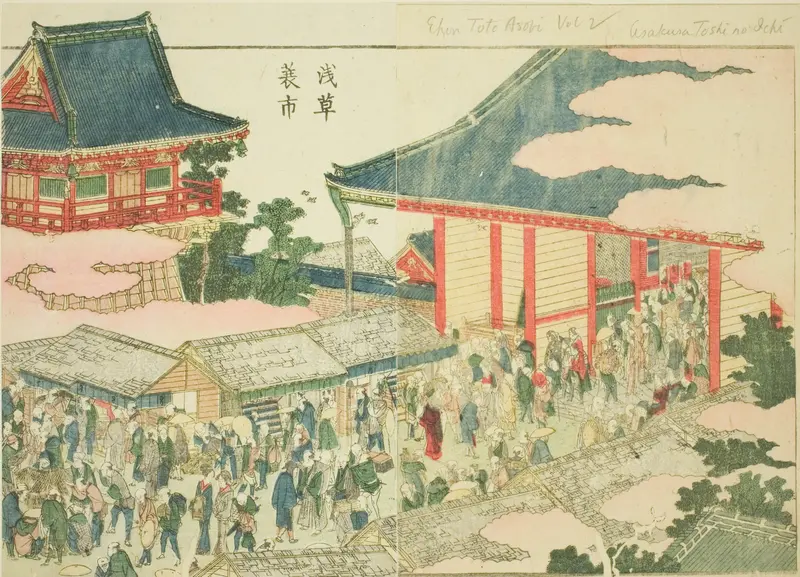 Ehon Toto Asobi Vol 2
Asakusa Toshi no Ichi
浅草
蓑市